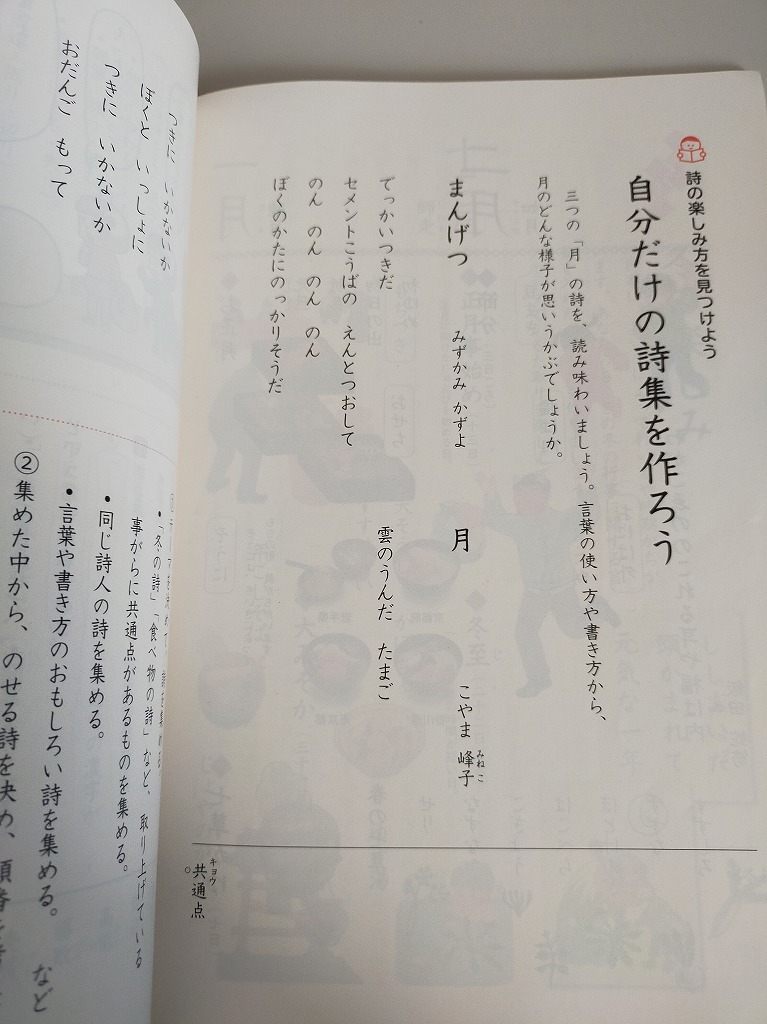 詩の楽しみ方を見つけよう
自分だけの詩集を作ろう
三つの「月」の詩を、読み味わいましょう。言葉の使い方や書き方から、
月のどんな様子が思いうかぶでしょうか。
まんげつ
みずかみ かずよ
でっかいつきだ
セメントこうばの えんとつおして
のん のん のん のん
ぼくのかたにのっかりそうだ
月
こやま 峰子
みねこ
雲のうんだ たまご
共通点
キョウ
つきに いかないか
ぼくと いっしょに
つきに いかないか
おだんご もって
・「冬の詩」「食べ物の詩」など、取り上げている
事がらに共通点があるものを集める。
・同じ詩人の詩を集める。
・言葉や書き方のおもしろい詩を集める。 など
②集めた中から、のせる詩を決め、